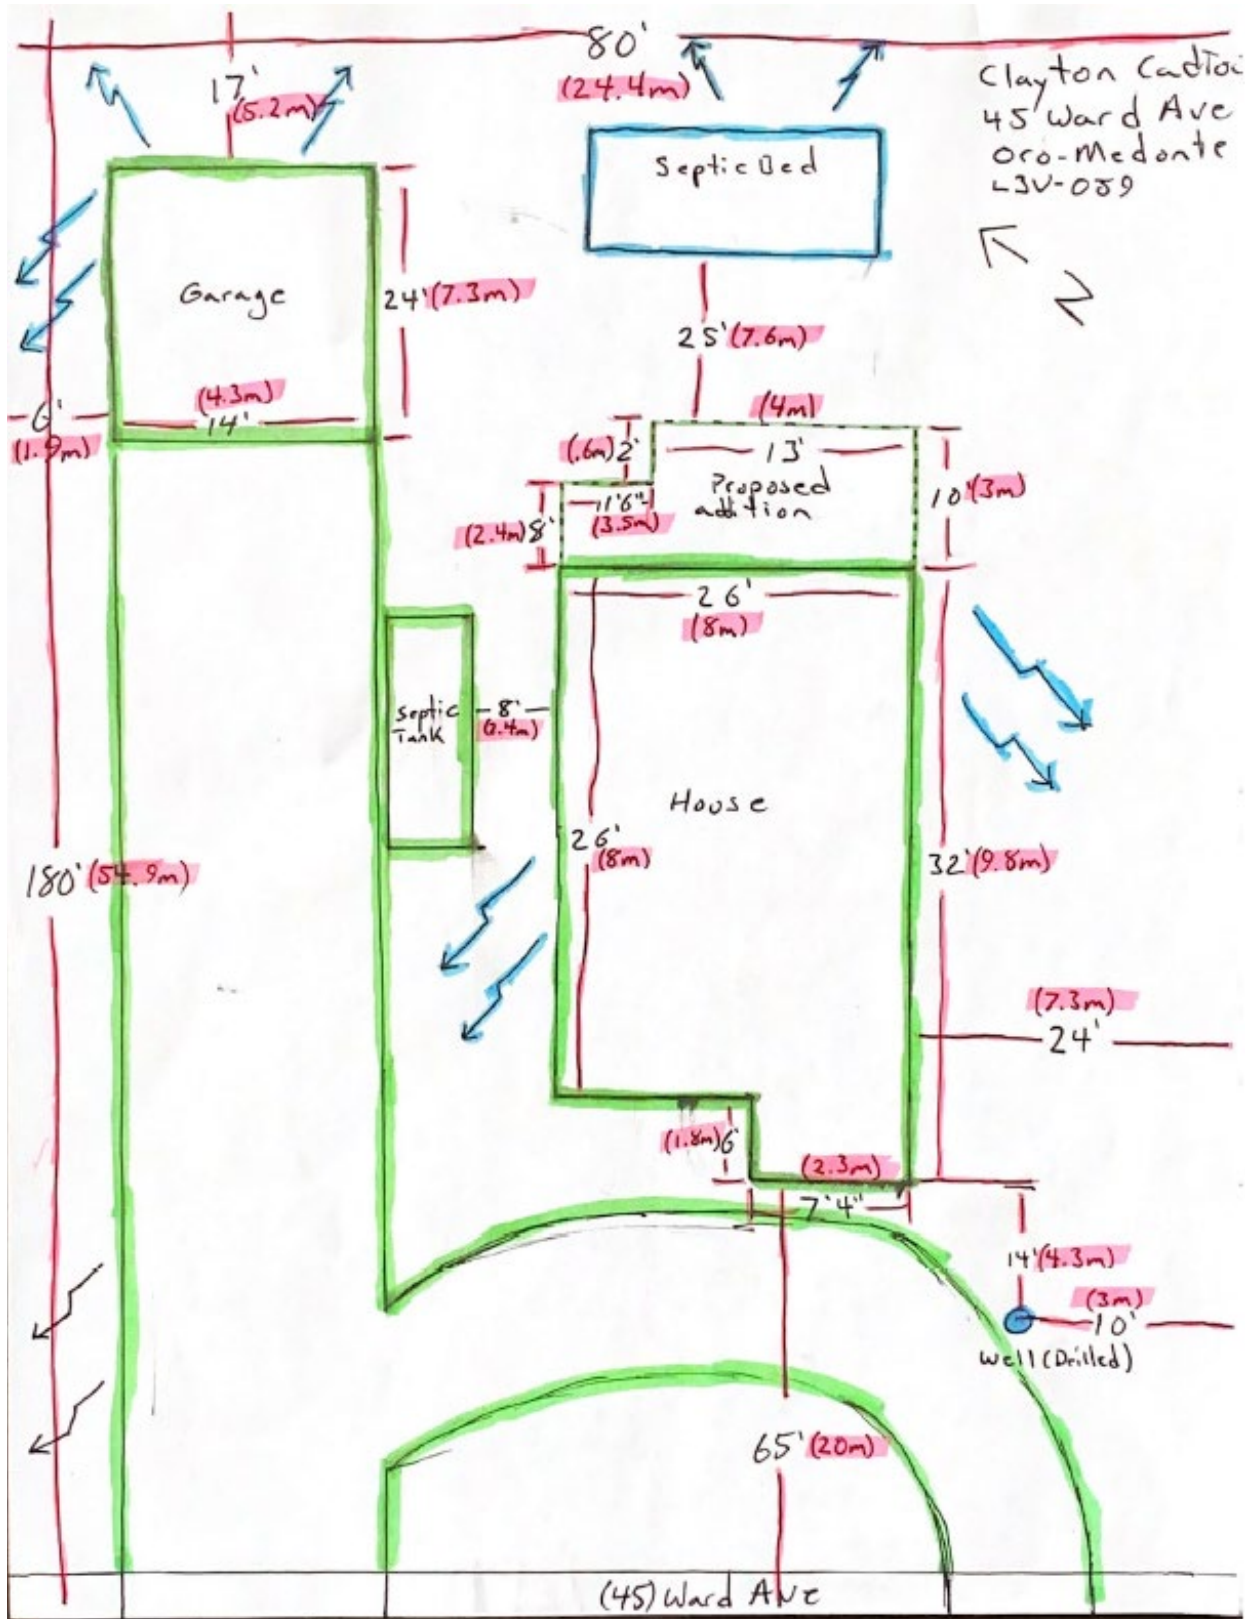 80'
(24.4m)
17'
(5.2m)
45 Ward Ave
Oro-Medonte
L3V-0S9
Clayton
N
Septic Bed
Garage
24' (7.3m)
25' (7.6m)
(4.3m)
14'
6'
(1.9m)
(4m)
13'
(.6m) 2'
Proposed
addition
10' (3m)
11'6"
(3.5m)
(2.4m) 8'
26'
(8m)
Septic
Tank
8'
(2.4m)
House
26'
(8m)
32' (9.8m)
180' (54.9m)
(7.3m)
24'
(1.8m) 6'
(2.3m)
7'4"
14' (4.3m)
(3m)
10'
Well (Drilled)
65' (20m)
(45) Ward Ave